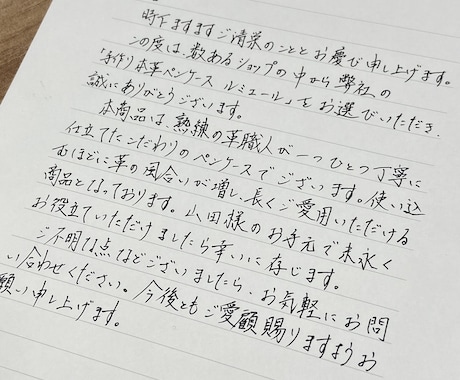 時下ますますご清栄のこととお慶び申し上げます。
この度は、数あるショップの中から弊社の
「手作り本革ペンケース ルミエール」をお選びいただき、
誠にありがとうございます。
本商品は、熟練の革職人が一つひとつ丁寧に
仕立てたこだわりのペンケースでございます。使い込
むほどに革の風合いが増し、長くご愛用いただける
商品となっております。山田様のお手元で末永く
お役立ていただけましたら幸いに存じます。
ご不明な点などございましたら、お気軽にお問
い合わせください。今後ともご愛顧賜りますようお
願い申し上げます。